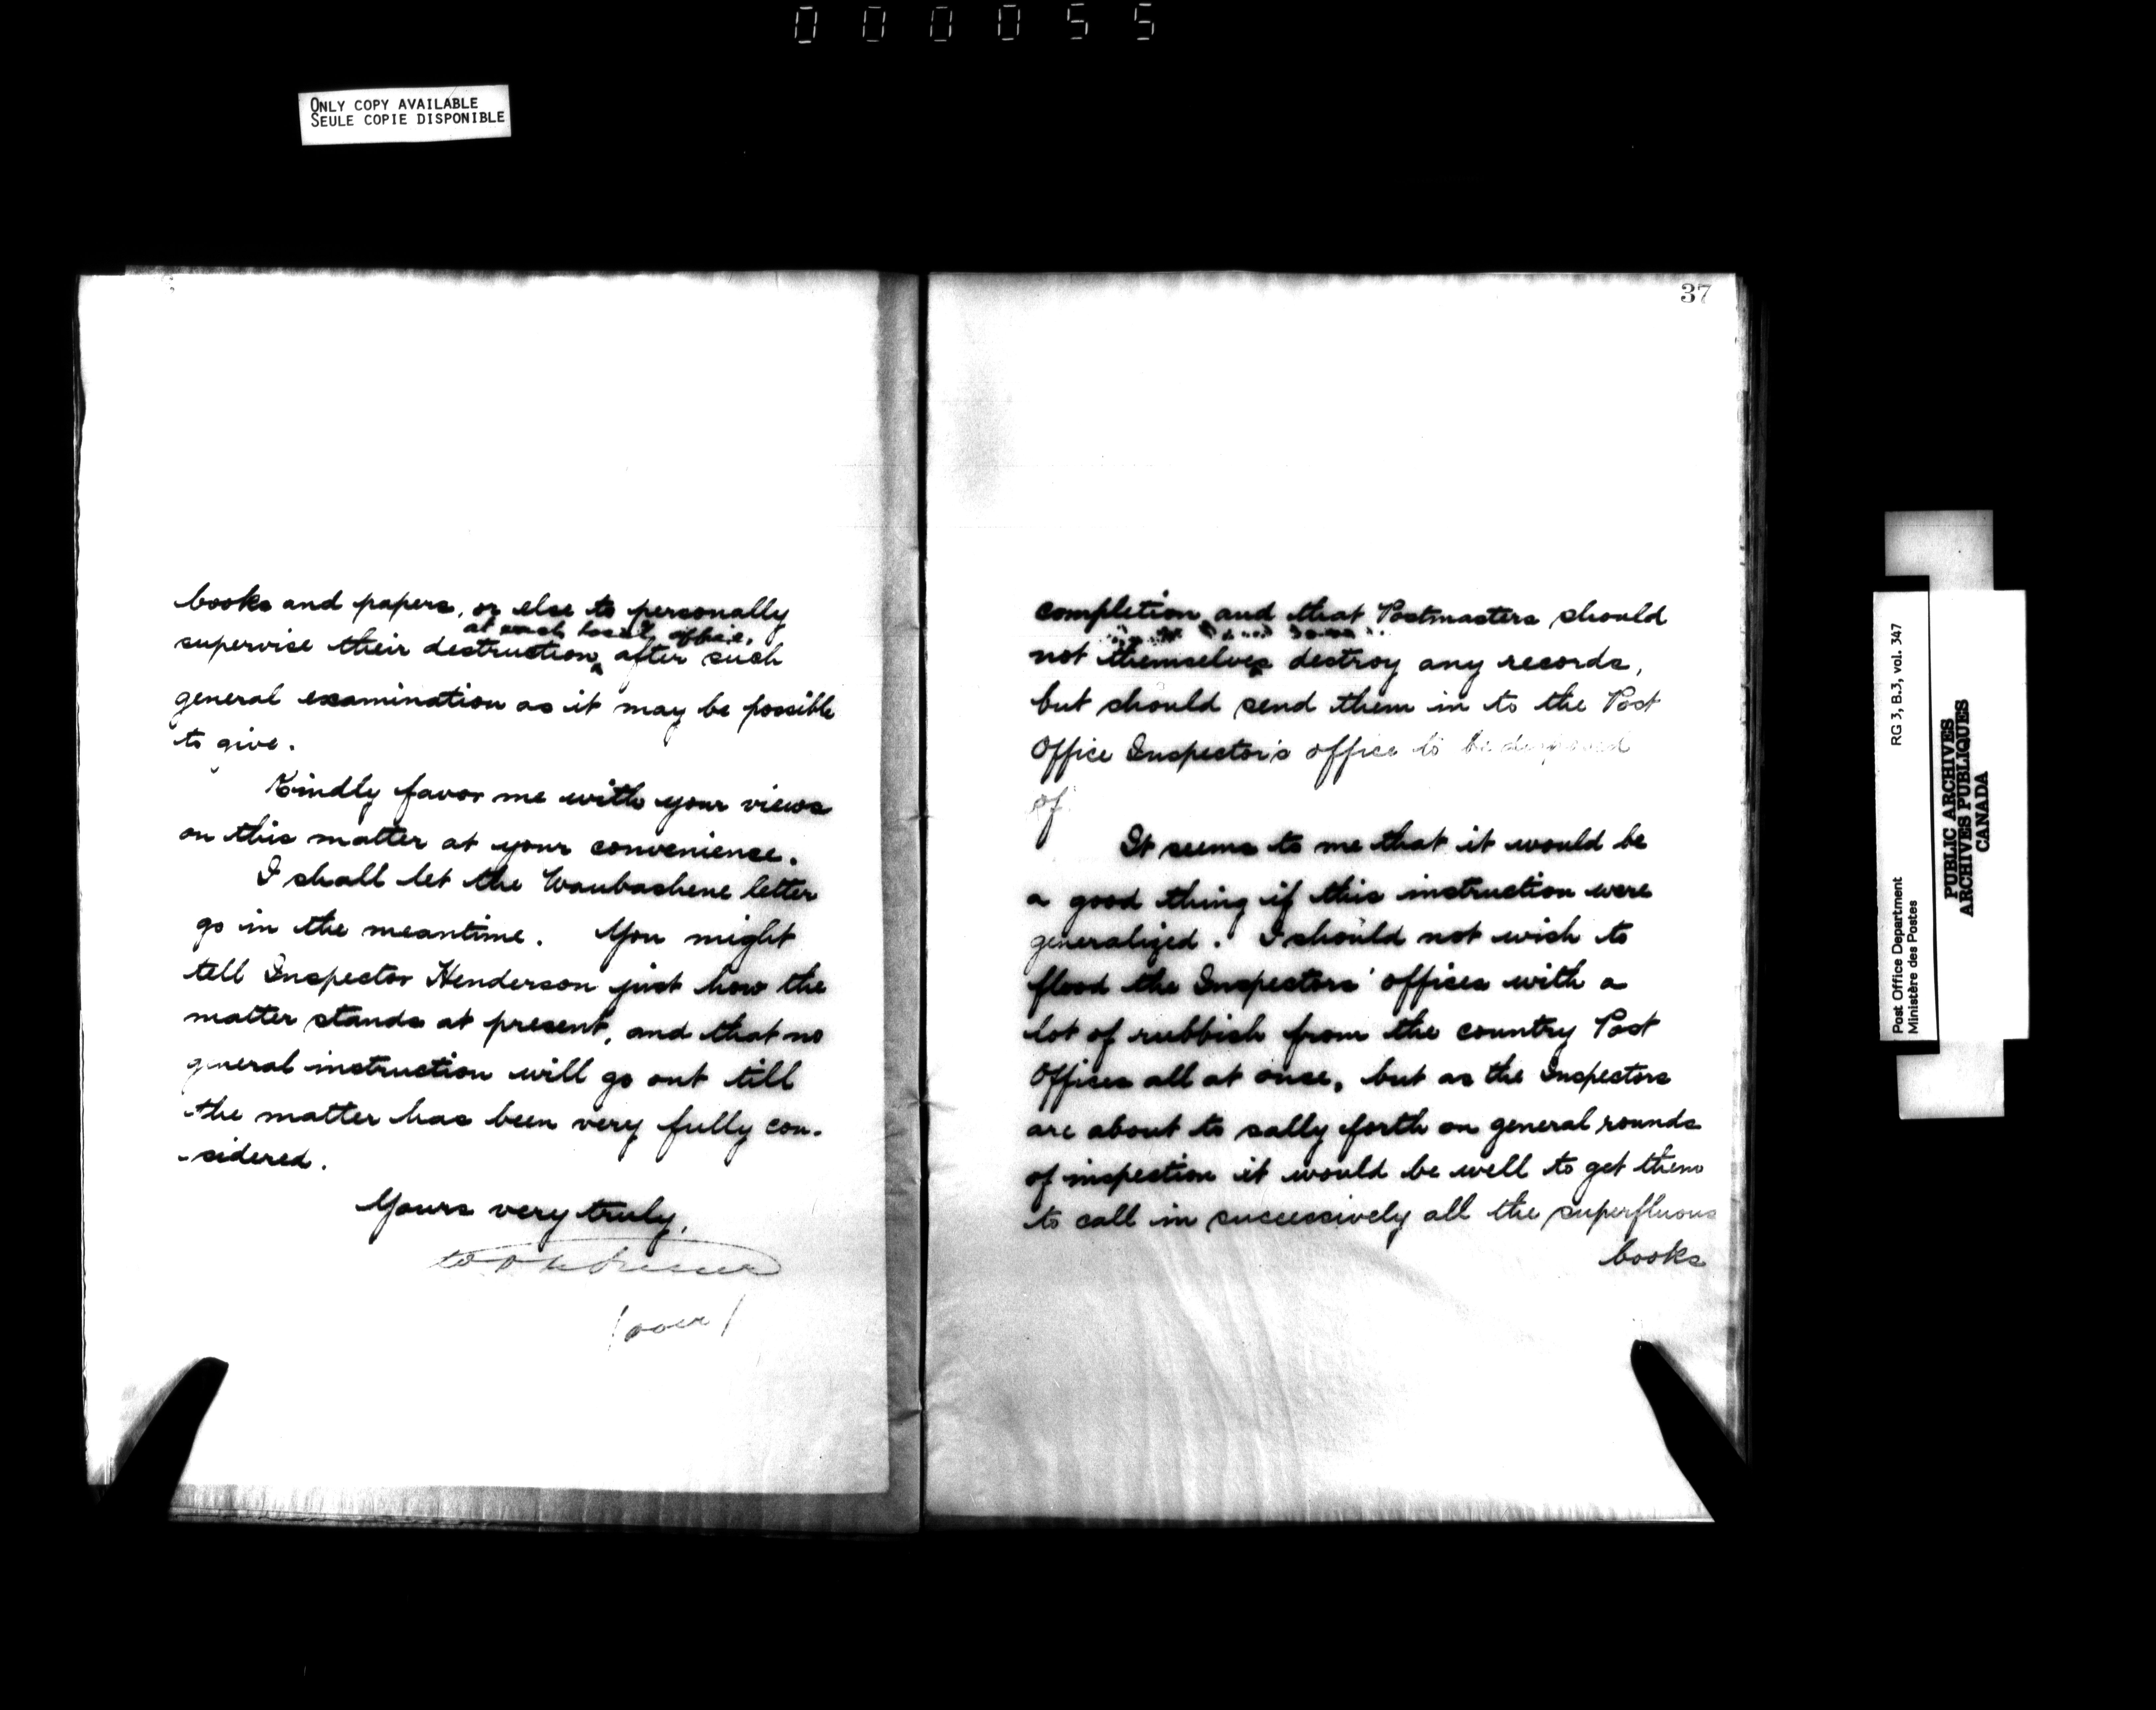 000055
ONLY COPY AVAILABLE
SEULE COPIE DISPONIBLE
books and papers, or else to personally
at each local office,
supervise their destruction ‸ after such
general examination as it may be possible
to give.
Kindly favor me with your views
on this matter at your convenience.
I shall let the Waubashene letter
go in the meantime. You might
tell Inspector Henderson just how the
matter stands at present, and that no
general instruction will go out till
the matter has been very fully con-
-sidered.
Yours very truly,
(over)
37
completion and that Postmasters should
not themselves destroy any records,
but should send them in to the Post
Office Inspector's office to be disposed
of.
It seems to me that it would be
a good thing if this instruction were
generalized. I should not wish to
flood the Inspectors' offices with a
lot of rubbish from the country Post
Offices all at once, but as the Inspectors
are about to sally forth on general rounds
of inspection it would be well to get them
to call in successively all the superfluous
books
Post Office Department
Ministère des Postes
RG 3, B.3, vol. 347
PUBLIC ARCHIVES
ARCHIVES PUBLIQUES
CANADA